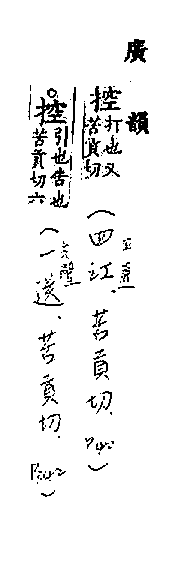 廣韻
控打也又苦貢切
（四江、苦貢切、P42）
控引也告也苦貢切六
（一送、苦貢切、P342）